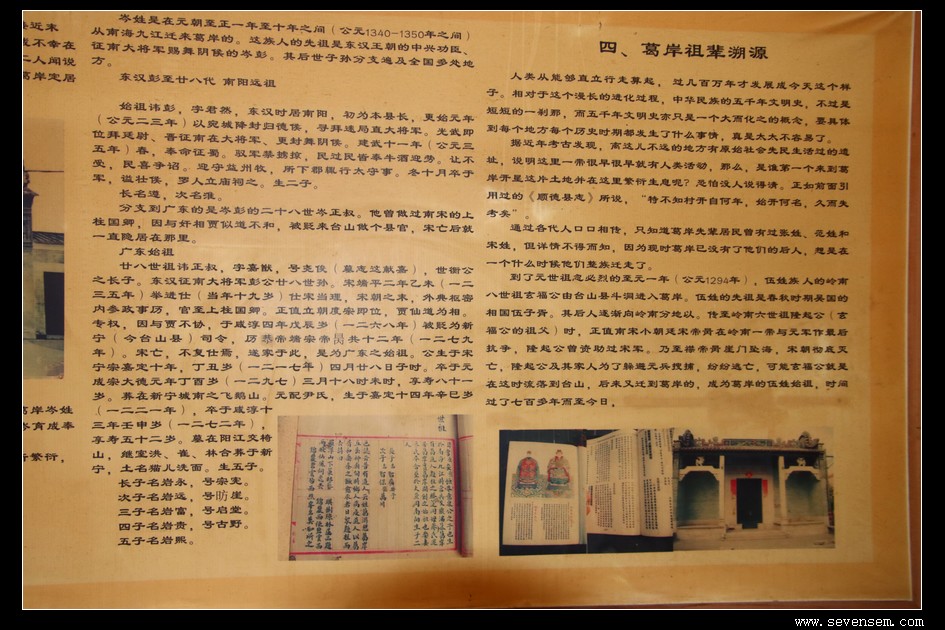 岑姓是在元朝至正一年至十年之间（公元1340—1350年之间）
从南海九江迁来葛岸的。这族人的先祖是东汉王朝的中兴功臣、
征南大将军赐舞阴侯的岑彭。其后世子孙分支遍及全国多处地
方。
东汉彭至廿八代 南阳远祖
始祖讳彭，字君然，东汉时居南阳，初为本县长，更始元年
（公元二三年）以宛城降封归德侯，寻拜廷尉直大将军。光武即
位拜廷尉、晋征南在大将军、更封舞阴侯。建武十一年（公元三
五年）春，奉命征蜀。驭军禁掳掠，民过民皆奉牛酒迎劳。让不
受，民喜争诏。迎守益州牧，所下郡辄行太守事。冬十月卒于
军，谥壮侯，罗人立庙祠之。生二子。
长名遵，次名淮。
分支到广东的是岑彭的二十八世岑正叔。他曾做过南宋的上
柱国卿，因与奸相贾似道不和，被贬来台山做个县官，宋亡后就
一直隐居在那里。
广东始祖
廿八世祖讳正叔，字嘉猷，号克侯（墓志这献嘉），世衡公
之长子。东汉征南大将军彭公廿八世孙。宋端平二年乙未（一二
三五年）举进仕（当年十九岁）仕宋当理，宋朝之末，外典枢密
内参政事历，官至上柱国卿。正值立朝度宗即位，贾仙道为相。
专权，因与贾不协，于咸淳四年戊辰岁（一二六八年）被贬为新
宁（今台山县）司令，历恭帝端宗帝昺共十二年（一二七九
年）。宋亡，不复仕焉，遂家于此，是为广东之始祖。公生于宋
宁宗嘉定十年，丁丑岁（一二一七年）四月廿八日子时。卒于元
成宗大德元年丁酉岁（一二九七）三月十八时未时，享寿八十一
岁。葬在新宁城南之飞鹅山。元配尹氏，生于嘉定十四年辛巳岁
（一二二一年），卒于咸淳十
三年壬申岁（一二七二年），
享寿五十二岁。墓在阳江交椅
山，继室洪、崔、林合葬于新
宁，土名猫儿洗面。生五子。
长子名岩永，号宗宪。
次子名岩远，号昉崖。
三子名岩富，号启堂。
四子名岩贵，号古野。
五子名岩熙。
近来
不幸在
二人闻说
葛岸定居
葛岸岑姓
岑育成奉
繁衍，
四、葛岸祖辈溯源
人类从能够直立行走算起，过几百万年才发展成今天这个样
子。相对于这个漫长的进化过程，中华民族的五千年文明史，不过是
短短的一刹那，而五千年文明史亦只是一个大而化之的概念，要具体
到每个地方每个历史时期都发生了什么事情，真是太太不容易了。
据近年考古发现，离这儿不远的地方有原始社会先民生活过的遗
址，说明这里一带很早很早就有人类活动，那么，是谁第一个来到葛
岸开垦这片土地并在这里繁衍生息呢？恐怕没人说得清。正如前面引
用过的《顺德县志》所说，“特不知村开自何年，始开何名，久而失
考矣”
通过各代人口口相传，只知道葛岸先辈居民曾有过张姓、范姓和
宋姓，但详情不得而知，因为现时葛岸已没有了他们的后人，想是在
一个什么时候他们整族迁走了。
到了元世祖忽必烈的至元一年（公元1294年），伍姓族人的岭南
八世祖玄福公由台山县斗洞进入葛岸。伍姓的先祖是春秋时期吴国的
相国伍子胥。其后人逐渐向岭南分地以。传至岭南六世祖隆起公（玄
福公的祖父）时，正值南宋小朝廷宋帝昺在岭南一带与元军作最后
抗争，隆起公曾资助过宋军。乃至端帝昺崖门坠海，宋朝彻底灭
亡，隆起公及其家人为了躲避元兵搜捕，纷纷逃亡，可能玄福公就是
在这时流落到台山，后来又迁到葛岸的，成为葛岸的伍姓始祖，时间
过了七百多年而至今日，
www.sevensem.com